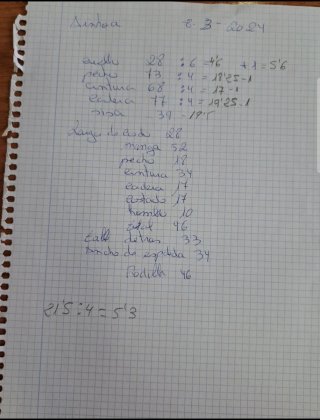 Ainhoa 8-3-2024
cuello 28 : 6 = 4'6 + 1 = 5'6
pecho 73 : 4 = 18'25-1
cintura 68 : 4 = 17-1
cadera 77 : 4 = 19'25-1
sisa 39 -
Largo de 28
manga 52
pecho 18
cintura 34
cadera 17
costado 17
hombro 10
total 46
detras 33
Ancho de espalda 34
Rodilla 46
21'5 : 4 = 5'3